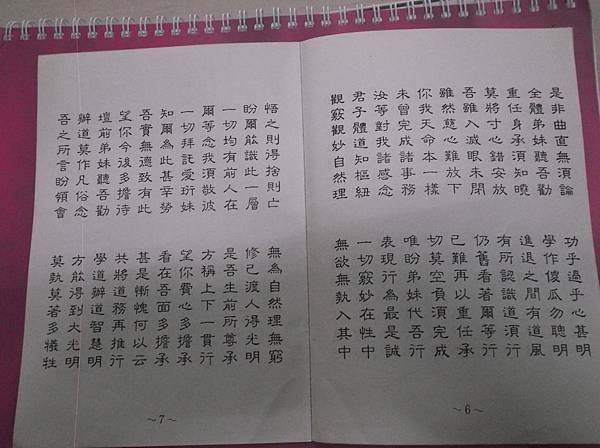 是非曲直無須論　功乎過乎心甚明
全體弟妹聽吾勸　學作傻瓜勿聰明
重任身承須知曉　進退之間有道風
莫將寸心錯安放　有所認識道須行
吾雖入滅眼未閉　仍舊看著爾等行
雖然慈心難放下　已難再以重任承
你我天命本一樣　切莫空負須完成
未曾完成諸事務　唯盼弟妹代吾行
汝等對我諸感念　表現行為最是誠
君子體道知樞紐　一切竅妙在性中
觀竅觀妙自然理　無欲無執入其中
～6～
悟之則得捨則亡　無為自然理無窮
盼爾能識此一層　修己渡人得光明
一切均有前人在　是吾生前所尊承
爾等念我須敬彼　方稱上下一貫行
一切拜託愛玡妹　望你費心多擔承
知爾為此甚辛勞　看在吾面多擔承
吾實無德致有此　甚是慚愧何以云
望你今後多擔待　共將道務再推行
壇前弟妹聽吾勸　學道辦道智慧明
辦道莫作凡俗念　方能得到大光明
吾之所言盼領會　莫執莫著多犧牲
～7～